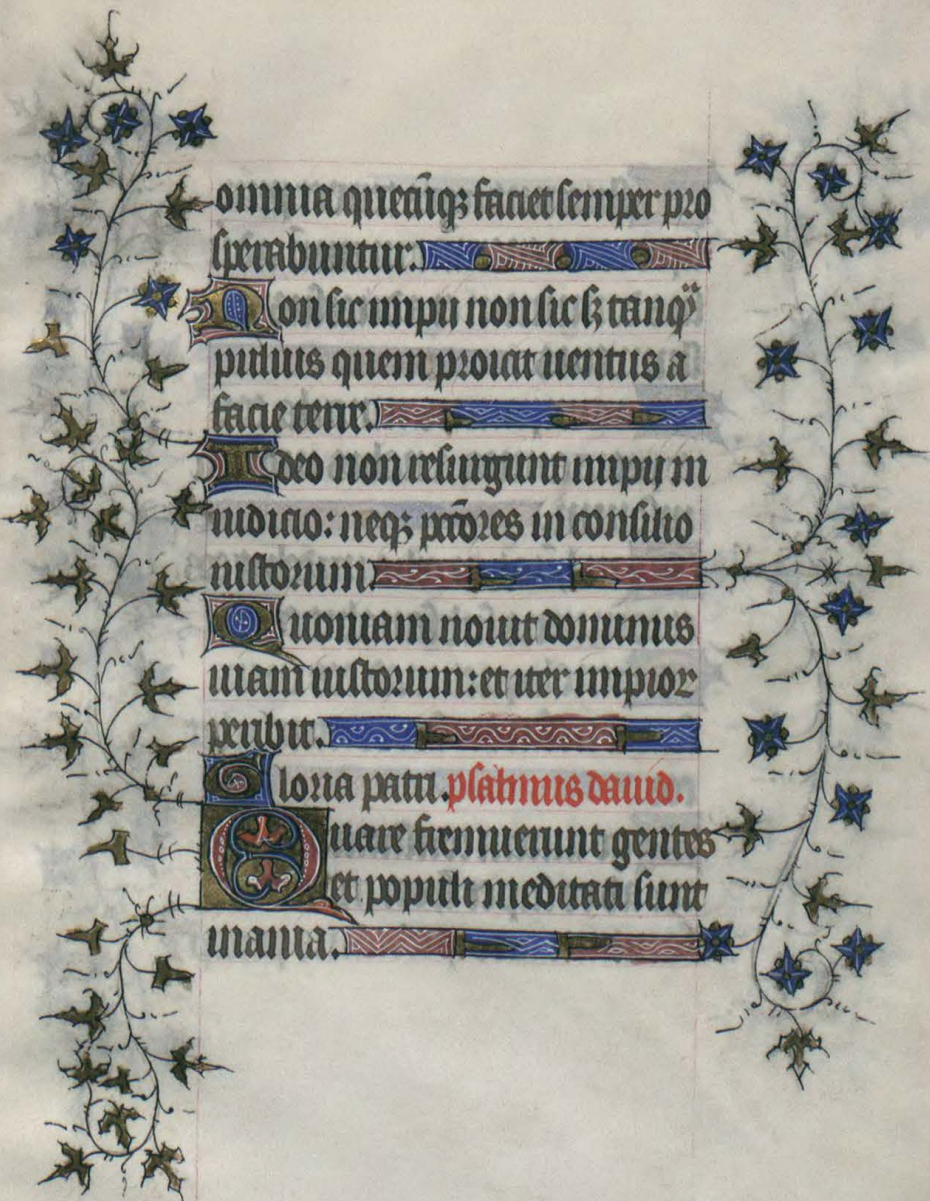 omnia quecūqꝫ faciet semper pro
sperabuntur.
Non sic impij non sic sꝫ tanqͣ
puluis quem proicit uentus a
facie terre.
Ideo non resurgunt impij in
iudicio: neqꝫ pc̄cōres in consilio
iustorum.
Quoniam nouit dominus
uiam iustorum: et iter impioꝝ
peribit.
Gloria patri. psalmus dauid.
Quare fremuerunt gentes
et populi meditati sunt
inania.